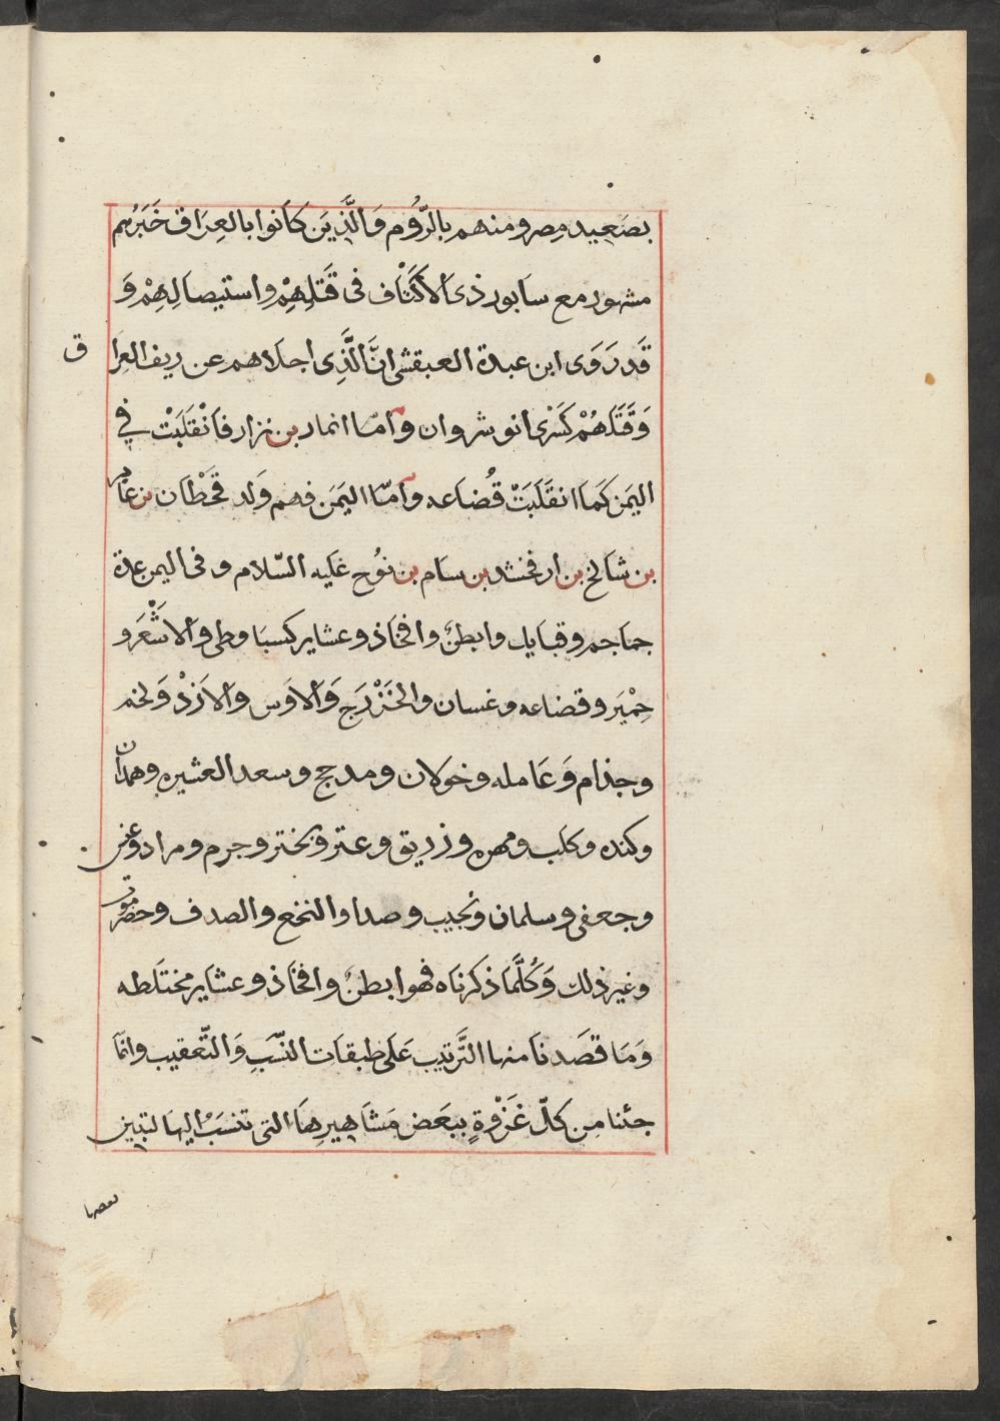 بصَعِيد مِصر ومنهم بالرُّوُم وَالَّذِيَن كَانوا بالعِرَاق خَبَرُهم
مشهور مع سابور ذى الاكَتْاف فى قَتلِهِمْ واستيصالِهِمْ وَ
قَد رَوَى ابن عبدة العبقشى انَّ الَّذِى اجلاهم عن ريف العِرَا
ق
وَقَتَلَهُمْ كَسْرَى انوشروان وامّا انمار بن نزار فانْقَلَبَتْ في
اليَمن كَمَا انقَلَبَتْ قُضاعه وامّا اليَمَن فهم وَلد قَحَطْان بن عَابر
بن شَالخ بن ارفخشد بن سام بن نوُح عَليه السّلام وفى اليمن عدة
جماجم وقبايل وابطنٌ وافخاذ وعشاير كسبَا وطى والاشْعَر و
حِمْيَر وقضاعه وغسان والخَزْرَج وَالاوَس وَالازَدْ وَلخم
وجذام وَعَامله وخولان ومدحج وسعد العشيره وهمدان
وكنده وكلب ومهره وزريق وعتر وبختر وجرم ومراد وعنس
وجعفى وسلمان وتجيب وصدا والنخع والصدف وحضرموت
وغير ذلك وَكُلَّمَا ذكرنَاه فهوا بطنٌ وافخاذ وعشاير مختَلطه
وَمَا قصَدنَا منها التَّرتيب عَلى طبقات النّسَبِ وَالتّعقيب وانّمَا
جئنا مِن كلّ غَزْوةٍ ببَعَض مَشَاهِيرِهَا التى تنسَبْ اليها لتبين
بعضها